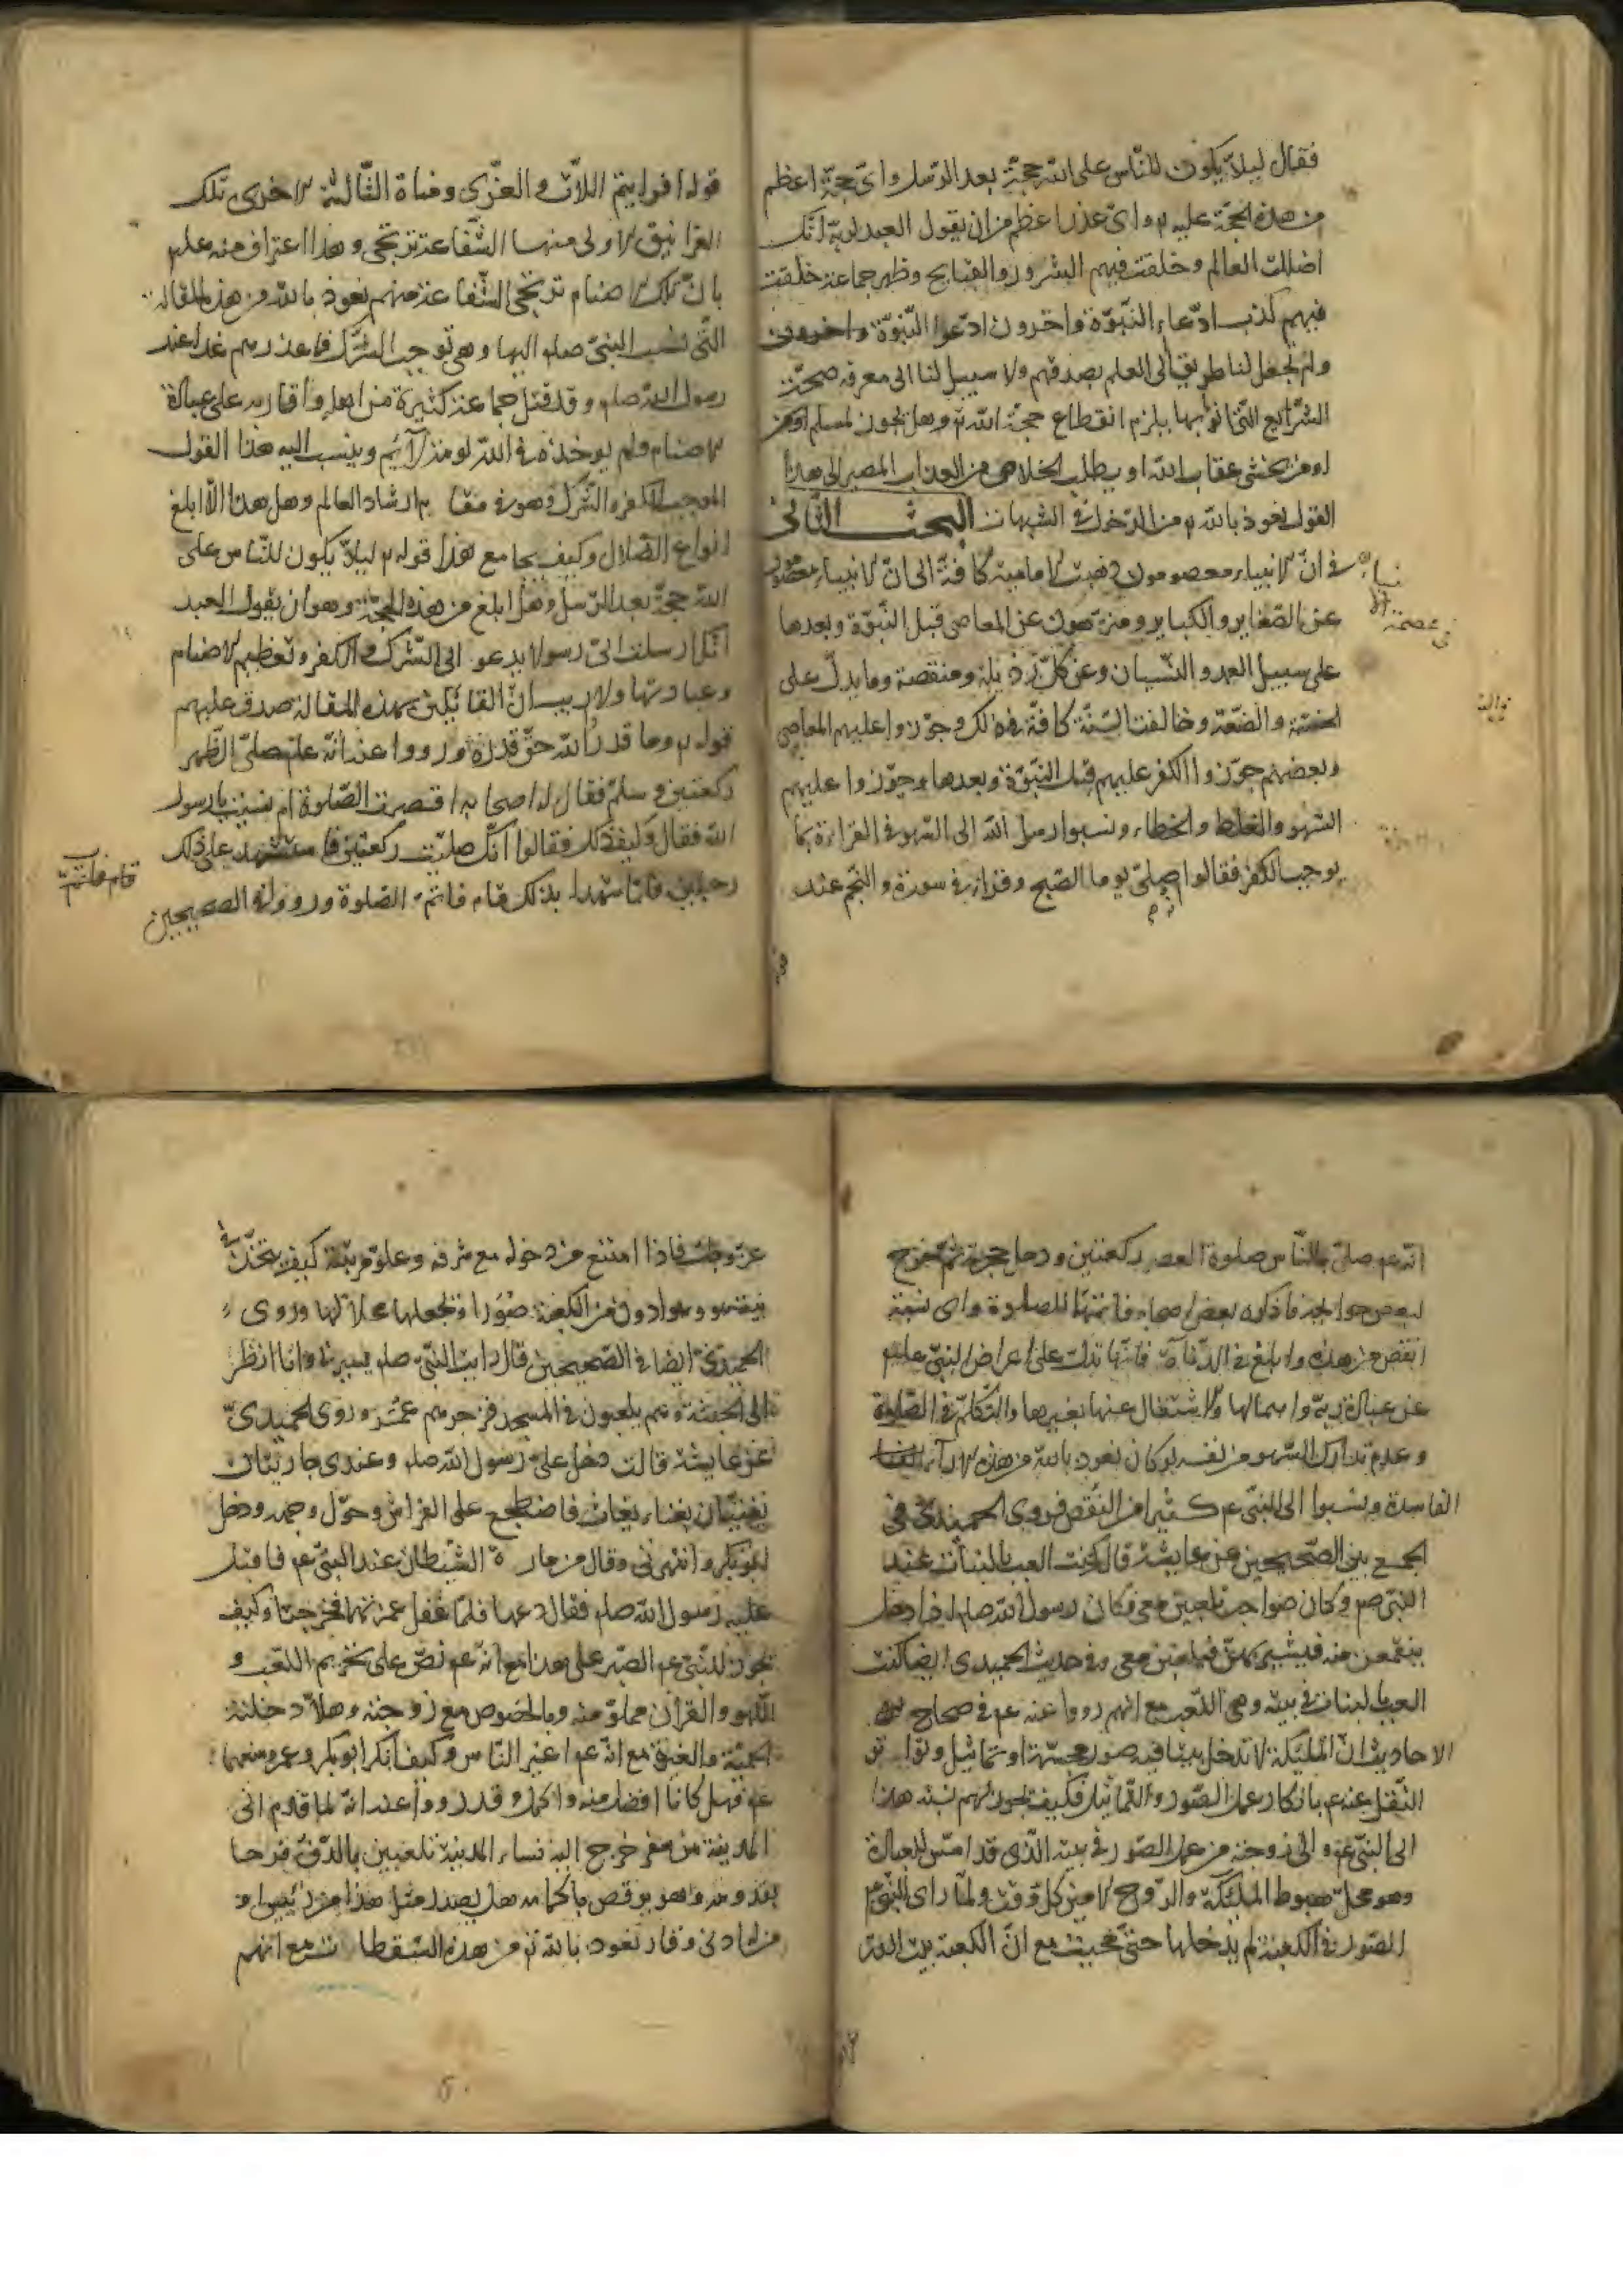 فقال ليلا يكون للناس على الله حجة بعد الرسل واى حجة اعظم
من هذه الحجة عليه تع واى عذر اعظم من ان يقول العبد لربه انك
اضللت العالم وخلقت فيهم الشرور والقبايح وظهر جماعة خلقت
فيهم كذب ادعاء النبوة واخرون ادعوا النبوة واخرون
ولم تجعل لنا طريقا الى العلم بصدقهم ولا سبيل لنا الى معرفة صحة
الشرائع التى اتوا بها فيلزم انقطاع حجة الله تع وهل يجوز لمسلم
او من يخشى عقاب الله او يطلب الخلاص من العذاب المصير الى هذا
القول نعوذ بالله من الدخول فى الشبهات البحث الثانى
فى ان الانبياء معصومون ذهبت الامامية كافة الى ان الانبياء معصومون
عن الصغاير والكباير ومنزهون عن المعاصى قبل النبوة وبعدها
على سبيل العمد والنسيان وعن كل رذيلة ومنقصة وما يدل على
الخسة والضعة وخالفت السنة كافة فى ذلك وجوزوا عليهم المعاصى
وبعضهم جوزوا الكفر عليهم قبل النبوة وبعدها وجوزوا عليهم
السهو والغلط والخطاء ونسبوا رسول الله الى السهو فى القراءة بما
يوجب الكفر فقالوا صلى يوما الصبح وقرا فى سورة والنجم عند
فى عصمة الانبياء
قوله افرايتم اللات والعزى ومناة الثالثة الاخرى تلك
الغرانيق الاولى منها الشفاعة ترتجى وهذا اعتراف منه علم
بان تلك الاصنام ترتجى الشفاعة منهم نعوذ بالله من هذه المقالة
التى نسب النبى صلم اليها وهى توجب الشرك فما عذرهم غدا عند
رسول الله صلم وقد قتل جماعة كثيرة من اهله واقاربه على عبادة
الاصنام ولم يوخذه فى الله لومة لآئم وينسب اليه هذا القول
الموجب للكفر والشرك وهو فى مقام ارشاد العالم وهل هذا الا ابلغ
انواع الضلال وكيف يجامع هذا قوله تع ليلا يكون للناس على
الله حجة بعد الرسل وهل ابلغ من هذه الحجة وهو ان يقول العبد
انك ارسلت الى رسولا يدعو الى الشرك والكفر وتعظيم الاصنام
وعبادتها ولا ريب ان القائلين بهذه المقالة صدق عليهم
قوله تع وما قدروا الله حق قدره ورووا عنه انه علم صلى الظهر
ركعتين وسلم فقال له اصحابه اقصرت الصلوة ام نسيت يا رسول
الله فقال وكيف ذلك فقالوا انك صليت ركعتين فاستشهد على ذلك
رجلين فلما شهدا بذلك قام فاتم الصلوة ورووا فى الصحيحين
قام فاتم
انه عم صلى بالناس صلوة العصر ركعتين ودخل حجرته ثم خرج
لبعض حوايجه فذكره بعض اصحابه فاتمها للصلوة واى نسبة
انقص من هذه وابلغ فى الدنآة فانها تدل على اعراض النبى علم
عن عبادة ربه واهمالها والاشتغال عنها بغيرها والتكلم فى الصلوة
وعدم تدارك السهو من نفسه لو كان نعوذ بالله من هذه الآراء
الفاسدة ونسبوا الى النبى عم كثيرا من النقص فروى الحميدى فى
الجمع بين الصحيحين عن عايشة قال كنت العب بالبنات عند
النبى صم وكان صواحب تلعبن معى فكان رسول الله صلم اذا دخل
ينقمعن منه فيشير بهن فيلعبن معى وفى حديث الحميدى ايضا كنت
العب بالبنات فى بيته وهى اللعب مع انهم رووا عنه عم فى صحاح
الاحاديث ان الملئكة لا تدخل بيتا فيه صور مجسمة او تماثيل وتواتر
النقل عنه عم بانكار عمل الصور والتماثيل فكيف يجوز لهم نسبة هذا
الى النبى عم والى زوجته من عمل الصور فى بيته الذى قد اسس للعبادة
وهو محل هبوط الملئكة والروح الامين كل وقت ولما راى النبى عم
الصور فى الكعبة لم يدخلها حتى محيت مع ان الكعبة بيت الله
عز وجل فاذا امتنع من دخوله مع شرفه وعلو مرتبته كيف يتخذ فى
بيته وهو ادون من الكعبة صورا وتجعلها محلا لها وروى
الحميدى ايضا فى الصحيحين قال رايت النبى صلم يسترنى وانا انظر
الى الحبشة وهم يلعبون فى المسجد فزجرهم عمر وروى الحميدى
عن عايشة قالت دخل على رسول الله صلم وعندى جاريتان
تغنيان بغناء بعاث فاضطجع على الفراش وحول وجهه ودخل
ابو بكر وانتهرنى وقال مزمارة الشيطان عند النبى عم فاقبل
عليه رسول الله صلم فقال دعها فلما غفل غمزتهما فخرجتا وكيف
يجوز للنبى عم الصبر على هذا مع انه عم نص على تحريم اللعب و
اللهو والقرآن مملو منه وبالخصوص مع زوجته وهلا دخلته
الحمية والغيرة مع انه عم اغير الناس وكيف انكر ابو بكر وعمر ومنعهما
عم فهل كانا افضل منه واكمل وقد رووا عنه انه لما قدم الى
المدينة من سفر خرج اليه نساء المدينة تلعبين بالدف فرحا
بقدومه وهو يرقص باكمامه هل يصدر مثل هذا من رئيس او
من له ادنى وقار نعوذ بالله من هذه السقطات مع انهم